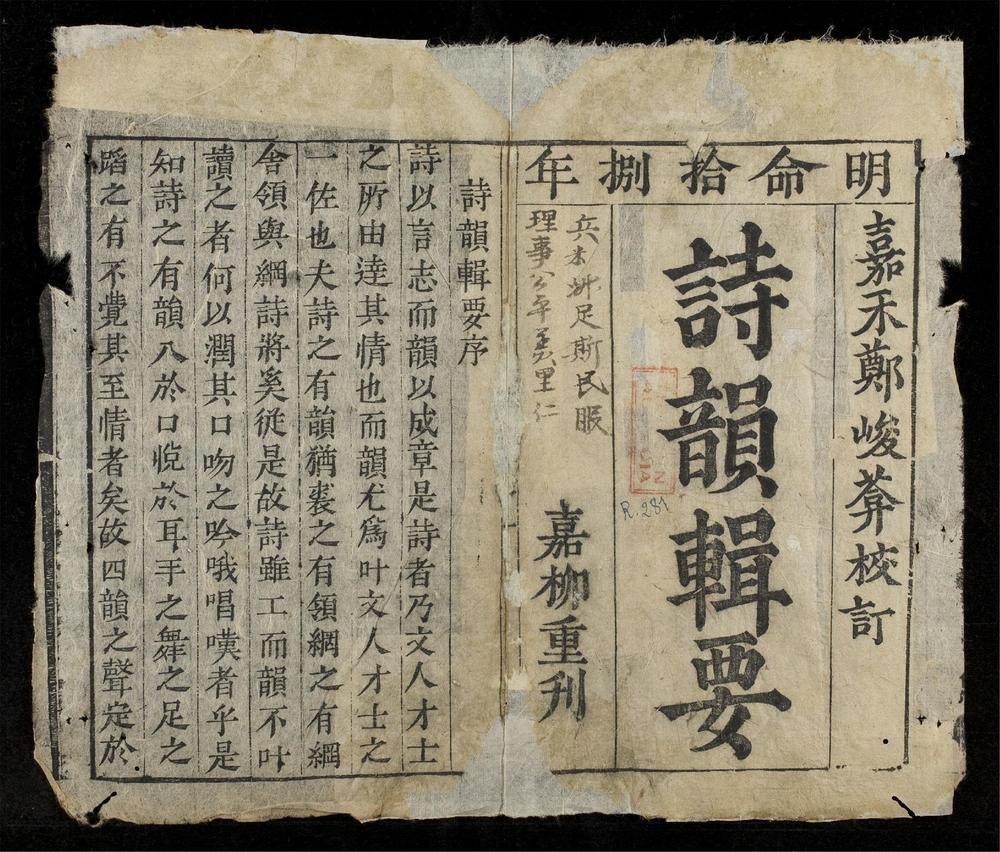 明命拾捌年
嘉禾鄭峻葊校訂
詩韻輯要
R.281
理事公平美里仁
嘉柳重刋
詩韻輯要序
詩以言志而韻以成章是詩者乃文人才士
之所由逹其情也而韻尤爲叶文人才士之
一佐也夫詩之有韻猶裘之有領網之有綱
舍領與綱詩將奚從是故詩雖工而韻不叶
讀之者何以潤其口吻之吟哦唱嘆者乎是
知詩之有韻入於口悅於耳手之舞之足之
蹈之有不覺其至情者矣故四韻之聲定於